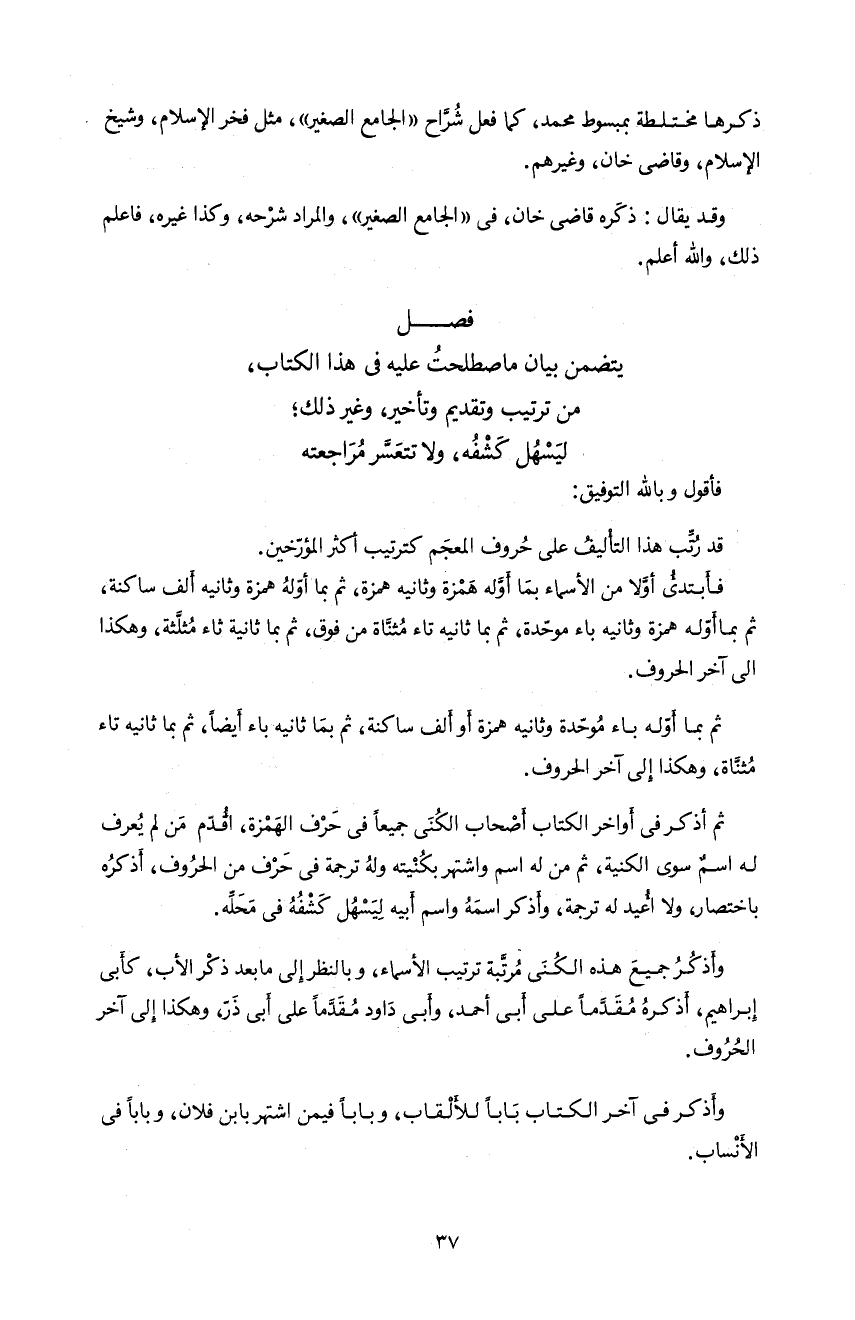 ذكرها مختلطة بمبسوط محمد، كما فعل شُرَّاح «الجامع الصغير»، مثل فخر الإسلام، وشيخ
الإسلام، وقاضى خان، وغيرهم.
وقد يقال : ذكَره قاضى خان، فى «الجامع الصغير»، والمراد شرْحه، وكذا غيره، فاعلم
ذلك، والله أعلم.
فصــــل
يتضمن بيان ماصطلحتُ عليه فى هذا الكتاب،
من ترتيب وتقديم وتأخير، وغير ذلك؛
ليَسْهُل كَشْفُه، ولا تتعَسَّر مُرَاجعته
فأقول وبالله التوفيق:
قد رُتِّب هذا التأليفُ على حُروف المعجَم كترتيب أكثر المؤرّخين.
فأبتدئُ أوَّلا من الأسماء بمَا أوَّله هَمْزة وثانيه همزة، ثم بما أوّلهُ همزة وثانيه ألف ساكنة،
ثم بماأوّله همزة وثانيه باء موحّدة، ثم بما ثانيه تاء مُثنَّاة من فوق، ثم بما ثانية ثاء مُثلَّثة، وهكذا
الى آخر الحروف.
ثم بما أوّله باء مُوحّدة وثانيه همزة أو ألف ساكنة، ثم بمَا ثانيه باء أيضاً، ثم بما ثانيه تاء
مُثنَّاة، وهكذا إلى آخر الحروف.
ثم أذكر فى أواخر الكتاب أصْحاب الكُنَى جميعاً فى حَرْف الهَمْزة، اقُدّم مَن لم يُعرف
له اسمٌ سوى الكنية، ثم من له اسم واشتهر بكُنْيته ولهُ ترجمة فى حَرْف من الحرُوف، أذكرُه
باختصار، ولا اعُيد له ترجمة، وأذكر اسمَهُ واسم أبيه لِيَسْهُل كَشْفُهُ فى مَحَلِّه.
وأذكُرُ جميعَ هذه الكُنَى مُرتَّبة ترتيب الأسماء، وبالنظر إلى مابعد ذكْر الأب، كأبى
إبراهيم، أذكرهُ مُقَدَّماً على أبى أحمد، وأبى دَاود مُقَدَّماً على أبى ذَرّ، وهكذا إلى آخر
الحُرُوف.
وأذكر فى آخر الكتاب بَاباً للألْقاب، وباباً فيمن اشتهر بابن فلان، وباباً فى
الأنْساب.
٣٧